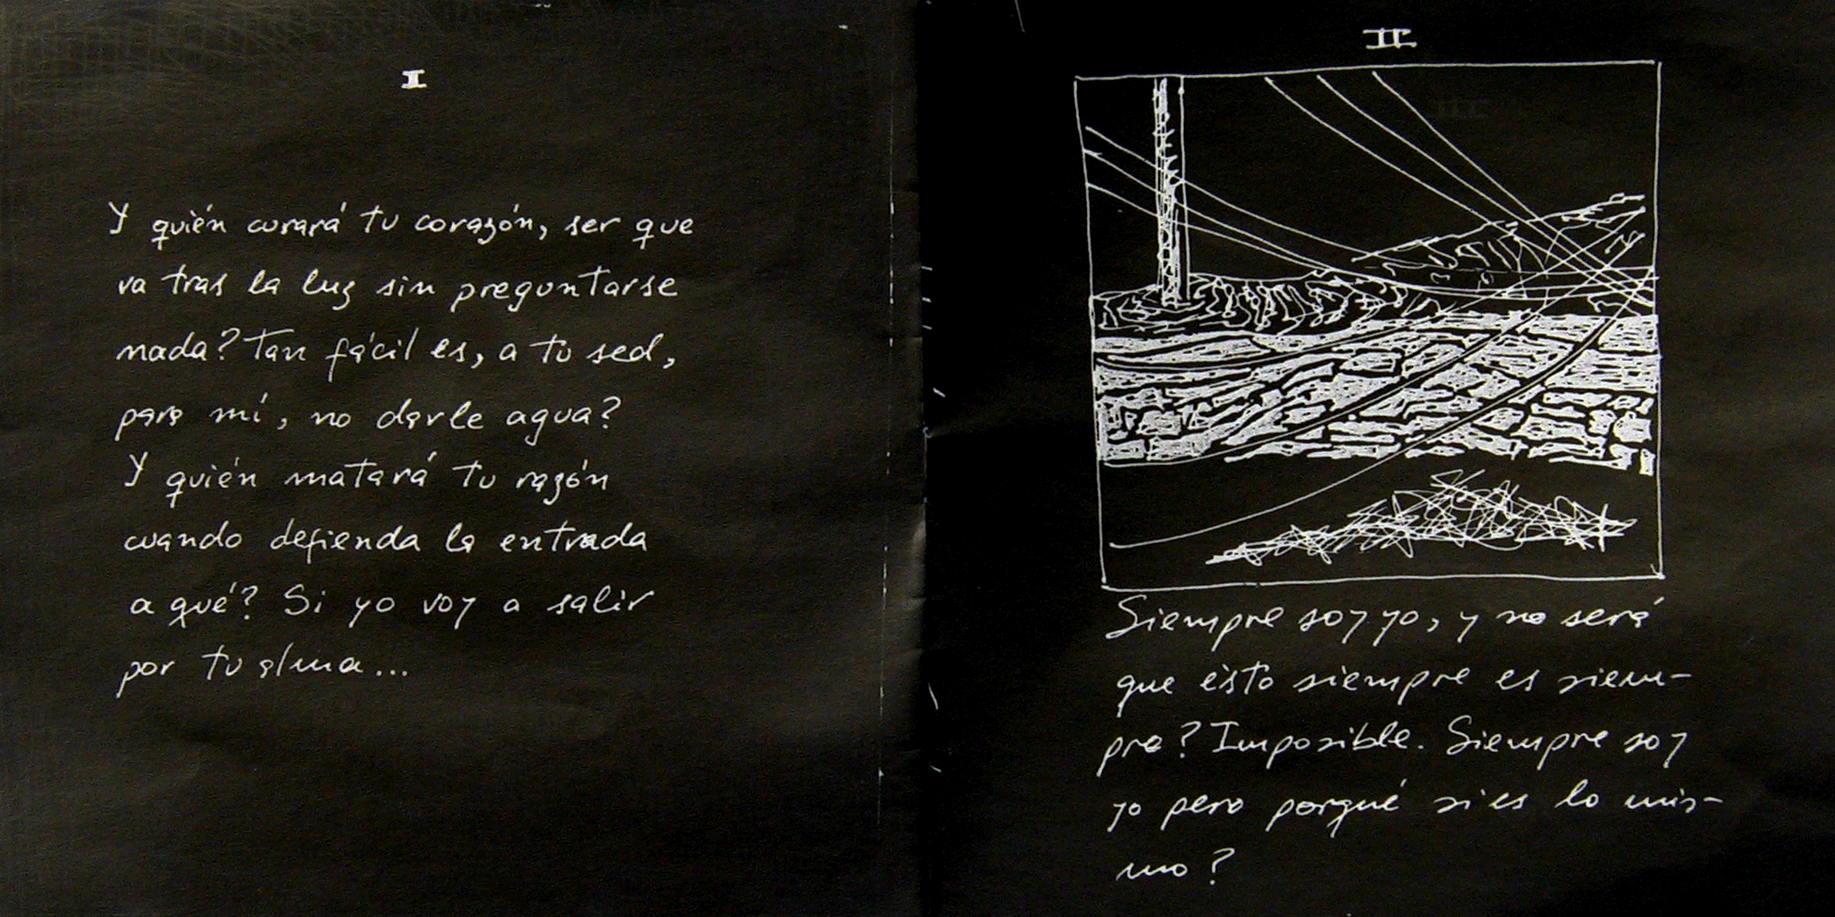 I
Y quién curará tu corazón, ser que
va tras la luz sin preguntarse
nada? Tan fácil es, a tu sed,
para mí, no darle agua?
Y quién matará tu razón
cuando defienda la entrada
a qué? Si yo voy a salir
por tu alma...
II
Siempre soy yo, y no será
que ésto siempre es siem-
pre? Imposible. Siempre soy
yo pero porqué si es lo mis-
mo?